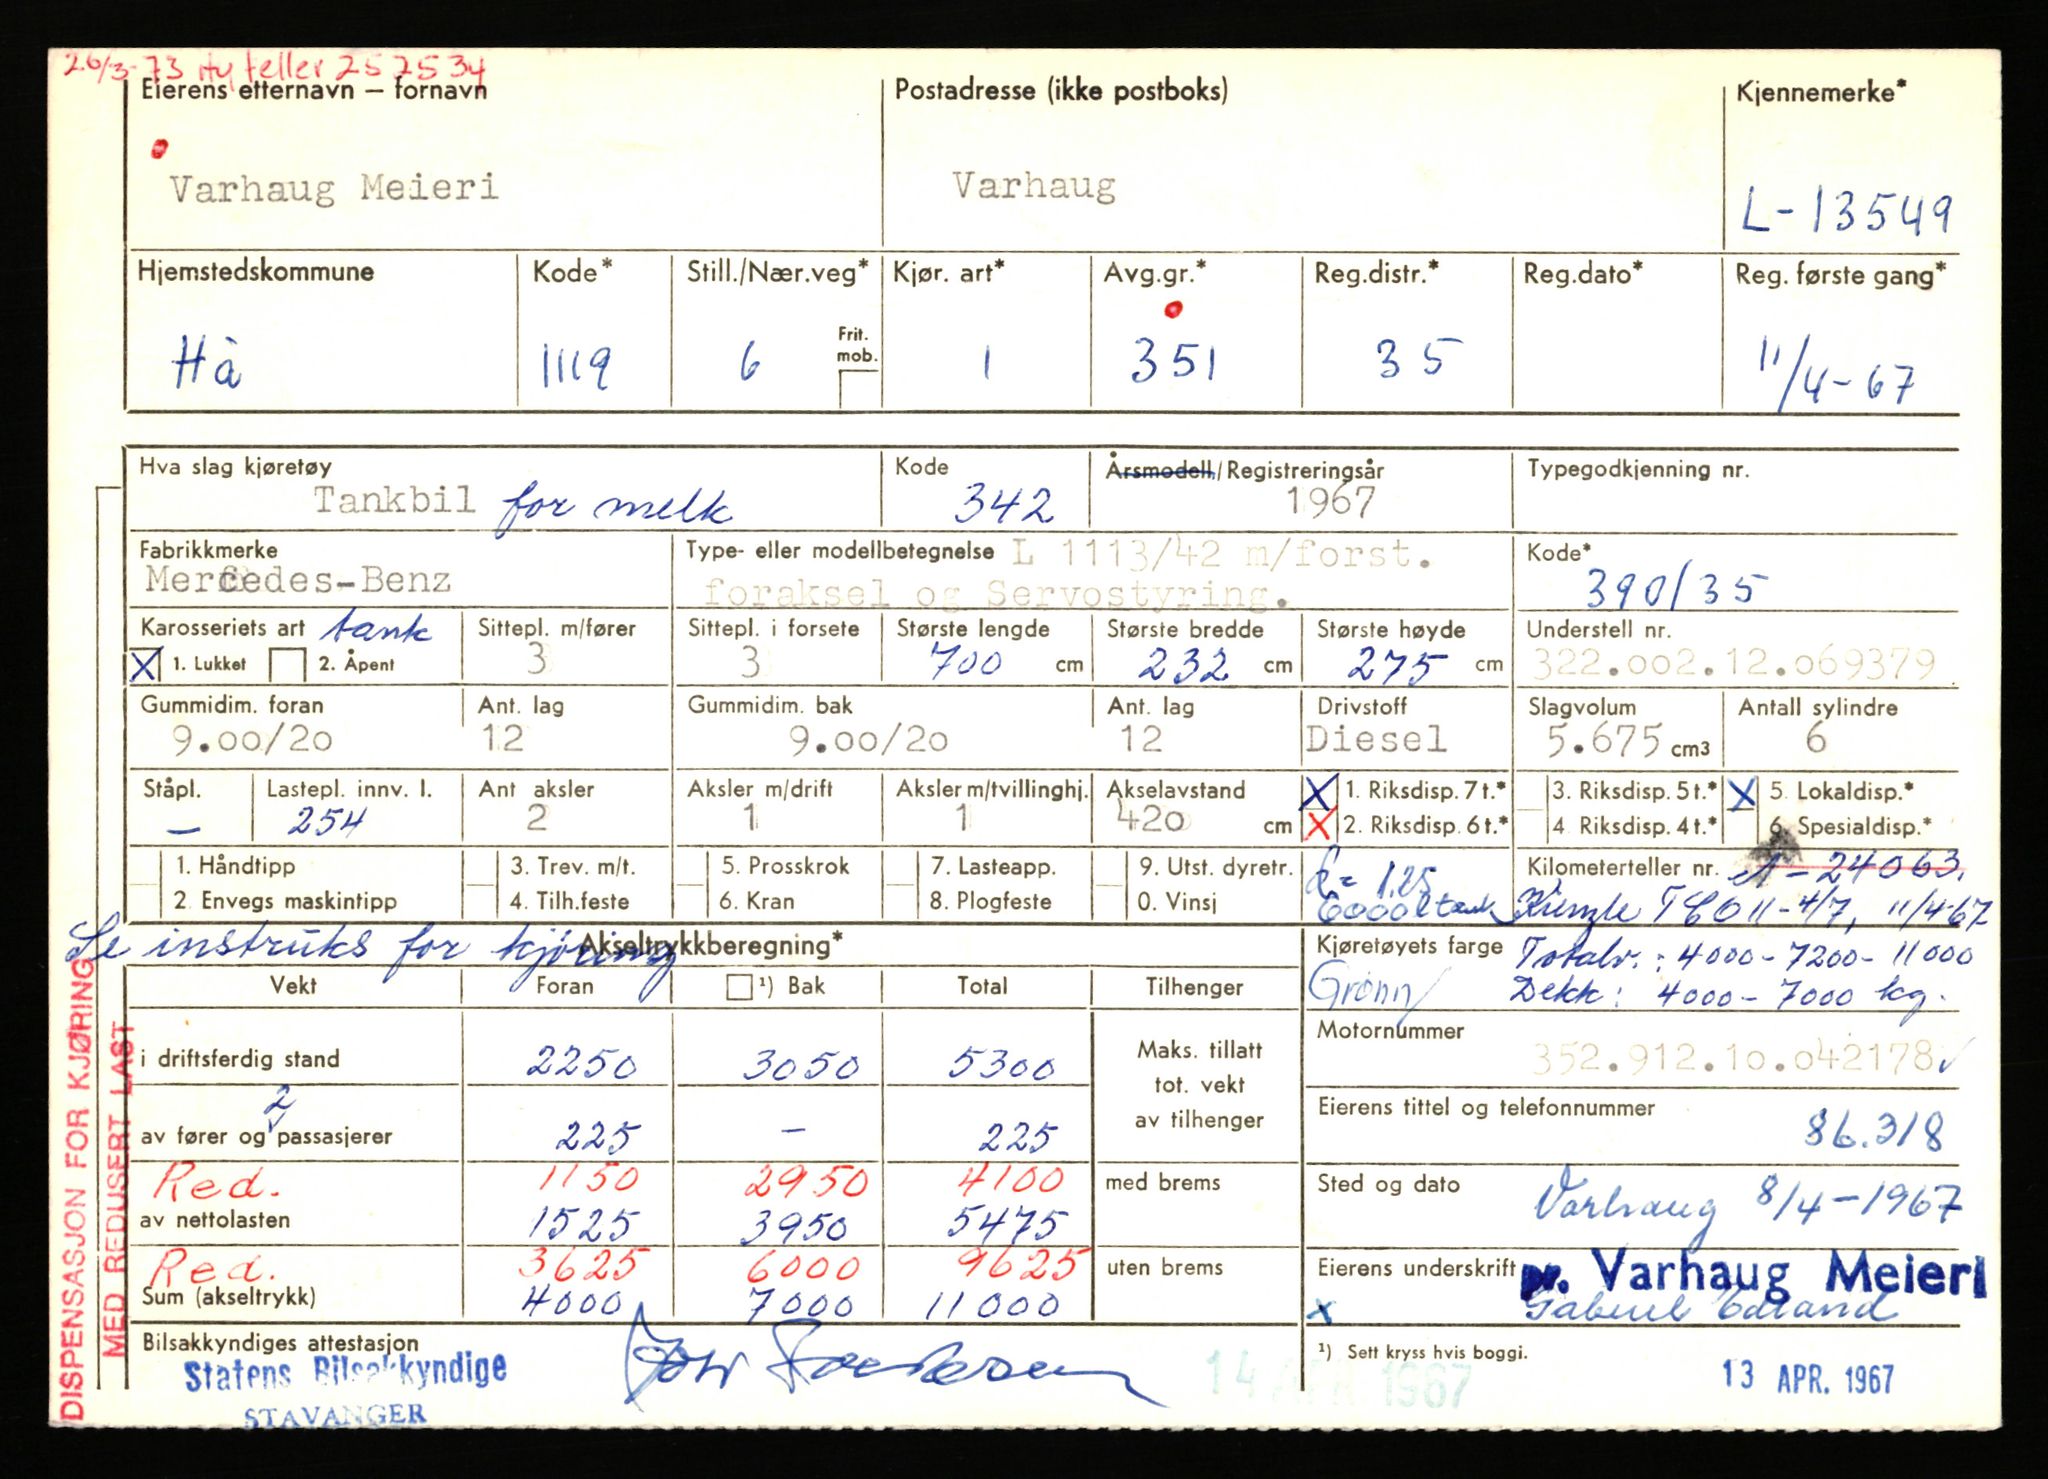 26/3-73 ny teller 257534
Eierens etternavn — fornavn
Postadresse (ikke postboks)
Kjennemerke*
Varhaug Meieri
Varhaug
L-13549
Hjemstedskommune
Kode*
Still./Nær.veg*
Kjør. art*
Avg.gr.*
Reg.distr.*
Reg.dato*
Reg. første gang*
Frit. mob.
Hå
1119
6
1
351
35
11/4-67
Hva slag kjøretøy
Kode
Årsmodell/Registreringsår
Typegodkjenning nr.
Tankbil for melk
342
1967
Fabrikkmerke
Type- eller modellbetegnelse L 1113/42 m/forst.
Kode*
Mercedes-Benz
foraksel og Servostyring.
390/35
Karosseriets art tank
Sittepl. m/fører
Sittepl. i forsete
Største lengde
Største bredde
Største høyde
Understell nr.
X 1. Lukket
2. Åpent
3
3
700 cm
232 cm
275 cm
322.002.12.069379
Gummidim. foran
Ant. lag
Gummidim. bak
Ant. lag
Drivstoff
Slagvolum
Antall sylindre
9.00/20
12
9.00/20
12
Diesel
5.675 cm3
6
Ståpl.
Lastepl. innv. l.
Ant aksler
Aksler m/drift
Aksler m/tvillinghj.
Akselavstand
X 1. Riksdisp. 7 t.*
3. Riksdisp. 5 t.*
X 5. Lokaldisp.*
—
254
2
1
1
420 cm
X 2. Riksdisp. 6 t.*
4. Riksdisp. 4 t.*
6. Spesialdisp.*
1. Håndtipp
3. Trev. m/t.
5. Prosskrok
7. Lasteapp.
9. Utst. dyretr.
Kilometerteller nr. A-24063.
2. Envegs maskintipp
4. Tilh.feste
6. Kran
8. Plogfeste
0. Vinsj
L= 1.25
6000 l tank
Kienzle TCO 11-4/7, 11/4-67
Se instruks for kjøring
Akseltrykkberegning*
Kjøretøyets farge
Totalv.: 4000-7200-11000
Vekt
Foran
¹) Bak
Total
Tilhenger
Grønn
Dekk: 4000-7000 kg.
i driftsferdig stand
2250
3050
5300
Maks. tillatt
tot. vekt
av tilhenger
Motornummer
352.912.10.042178
2
av fører og passasjerer
225
—
225
Eierens tittel og telefonnummer
86.318
Red.
1150
2950
4100
med brems
Sted og dato
Varhaug 8/4-1967
av nettolasten
1525
3950
5475
Red.
3625
6000
9625
uten brems
Eierens underskrift
pr. Varhaug Meieri
Sum (akseltrykk)
4000
7000
11000
x
Gabriel
Bilsakkyndiges attestasjon
¹) Sett kryss hvis boggi.
Statens Bilsakkyndige
STAVANGER
14 APR. 1967
13 APR. 1967
DISPENSASJON FOR KJØRING
MED REDUSERT LAST